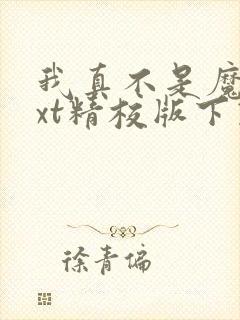 我真不是魔
xt精校版下
徐青偏